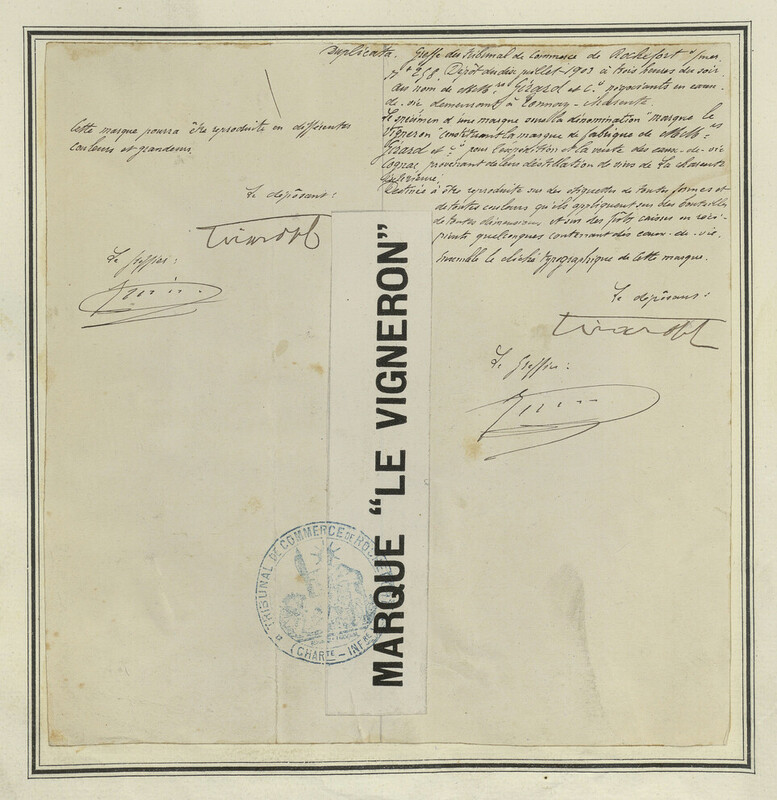 Duplicata. Greffe du tribunal de Commerce de Rochefort s/mer.
N° 258. Dépôt du dix juillet 1903 à trois heures du soir
au nom de MM.rs Girard et Cie négociants en eaux-
de-vie demeurant à Tonnay-Charente.
Le spécimen d'une marque sous la dénomination "marque le
Vigneron" constituant la marque de fabrique de MM.rs
Girard et Cie pour l'expédition et la vente des eaux-de-vie
Cognac provenant de leur distillation de vins de La Charente
Inférieure.
Destinée à être reproduite sur des étiquettes de toutes formes et
de toutes couleurs qu'ils appliquent sur des bouteilles
de toutes dimensions et sur des fûts caisses ou réci-
pients quelconques contenant des eaux-de-vie.
Ensemble le cliché typographique de cette marque.
Le déposant:
Le Greffier:
Cette marque pourra être reproduite en différentes
couleurs et grandeurs.
Le déposant:
Le Greffier:
MARQUE "LE VIGNERON"
TRIBUNAL DE COMMERCE DE ROCHE
(CHARTE - INFRE